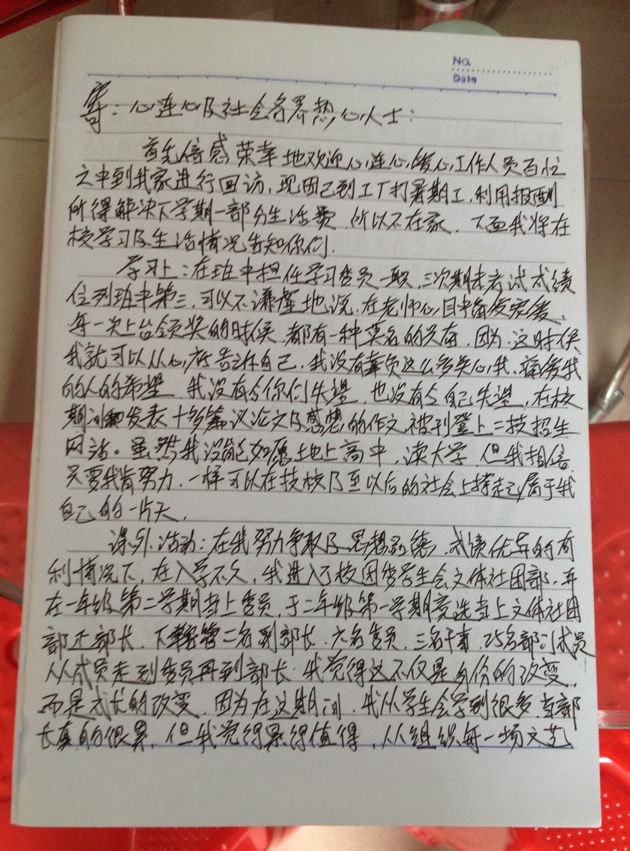 No.
Date
寄：心连心及社会各界热心人士：
首先倍感荣幸地欢迎心连心、暖心工作人员百忙
之中到我家进行回访，现因已到工厂打暑期工，利用报酬
所得解决下学期一部分生活费，所以不在家，下面我将在
校学习及生活情况告知你们．
学习上：在班中担任学习委员一职，三次期末考试成绩
位列班中第三，可以不谦虚地说，在老师心目中
每一次上台领奖的时候，都有一种莫名的兴奋，因为，这时候
我就可以从心底告诉自己，我没有辜负这么多关心我、痛爱我
的人的希望，我没有令你们失望，也没有令自己失望，在校
期间发表十多篇议论文及感想的作文被刊登上二技招生
网站。虽然我没能如愿地上高中，读大学，但我相信
只要我肯努力，一样可以在技校乃至以后的社会上撑起属于我
自己的一片天．
课外活动：在我努力争取及思想品德、成绩优异的有
利情况下，在入学不久，我进入了校团委学生会文体社团部，并
在一年级第二学期当上委员，于二年级第一学期竞选当上文体社团
部正部长，下管二名副部长，六名委员，三名干事，25名部门成员
从成员走到委员再到部长，我觉得这不仅是身份的改变，
而是成长的改变，因为在这期间，我从学生会学到很多，当部
长真的很累，但我觉得累得值得，从组织每一场文艺